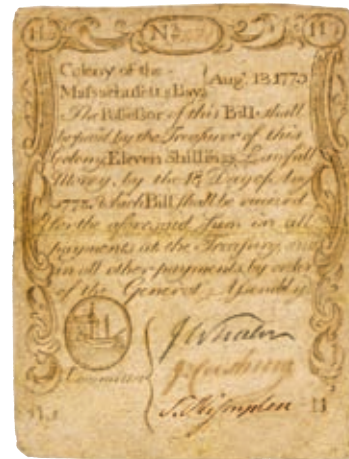 11 No 11
Colony of the Aug. 18 1775
Massachusetts Bay
The Possessor of this Bill shall
be paid by the Treasurer of this
Colony Eleven Shillings Lawfull
Money, by the 18 Day of Aug
1778. Which Bill shall be received
for the aforesaid Sum in all
payments at the Treasury, and
in all other payments by order
of the General Assembly
Committee